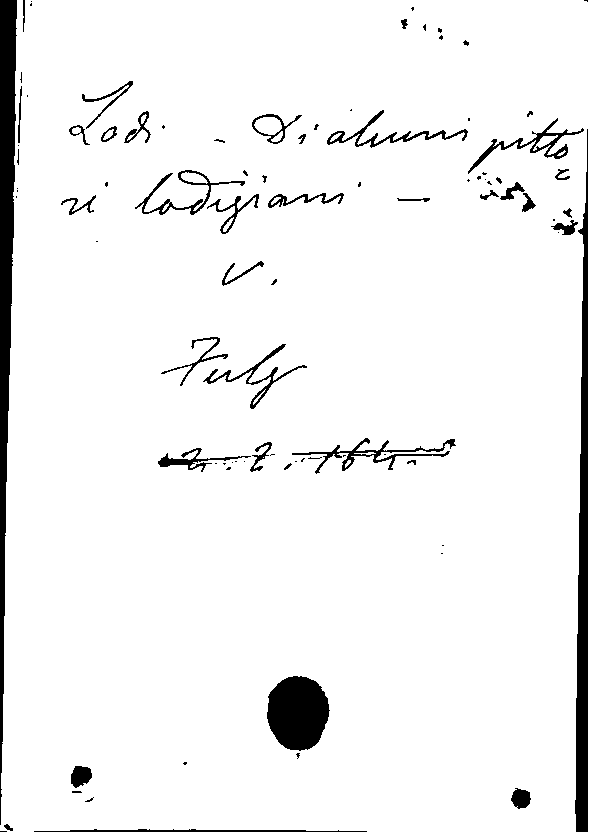 Lodi - Di alcuni pitto=
ri lodigiani -
V.
Fulg
2. Z. 164.